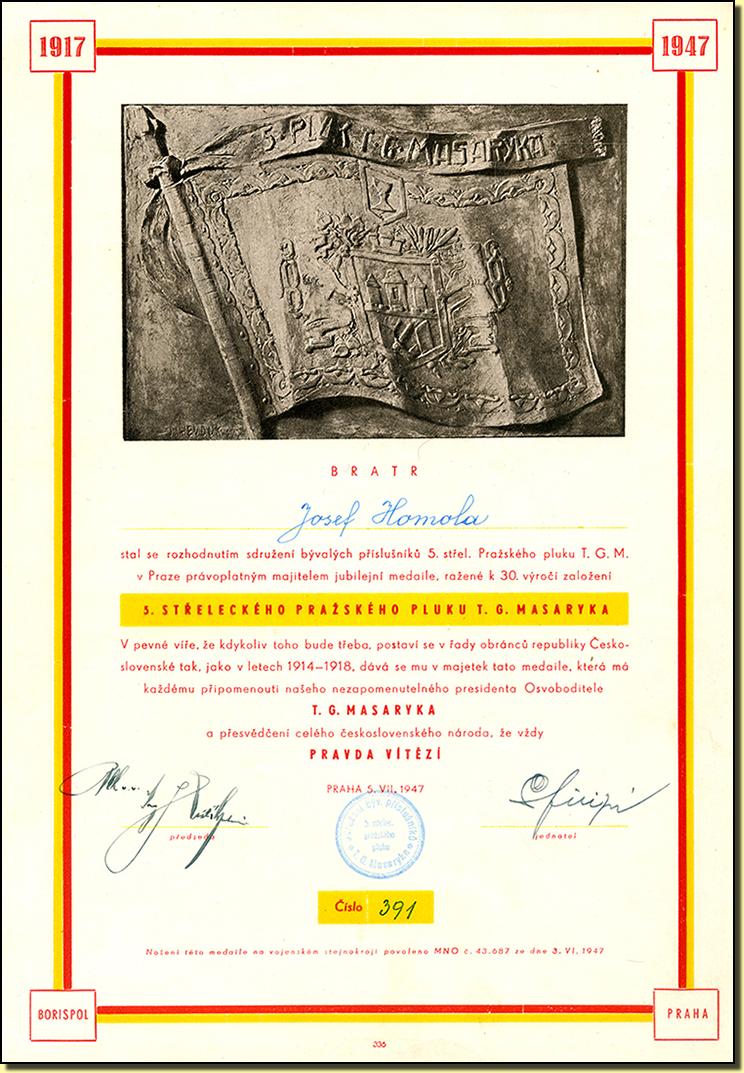 1917
1947
5. PLUK T. G. MASARYKA
BRATR
Josef Homola
stal se rozhodnutím sdružení bývalých příslušníků 5. střel. Pražského pluku T. G. M.
v Praze právoplatným majitelem jubilejní medaile, ražené k 30. výročí založení
5. STŘELECKÉHO PRAŽSKÉHO PLUKU T. G. MASARYKA
V pevné víře, že kdykoliv toho bude třeba, postaví se v řady obránců republiky Česko-
slovenské tak, jako v letech 1914–1918, dává se mu v majetek tato medaile, která má
každému připomenouti našeho nezapomenutelného presidenta Osvoboditele
T. G. MASARYKA
a přesvědčení celého československého národa, že vždy
PRAVDA VÍTĚZÍ
PRAHA 5. VII. 1947
předseda
jednatel
býv. příslušníků
5. střelec.
pražského
pluku
T. G. Masaryka
Číslo 391
Nošení této medaile na vojenském stejnokroji povoleno MNO č. 43.687 ze dne 3. VI. 1947
BORISPOL
PRAHA
336